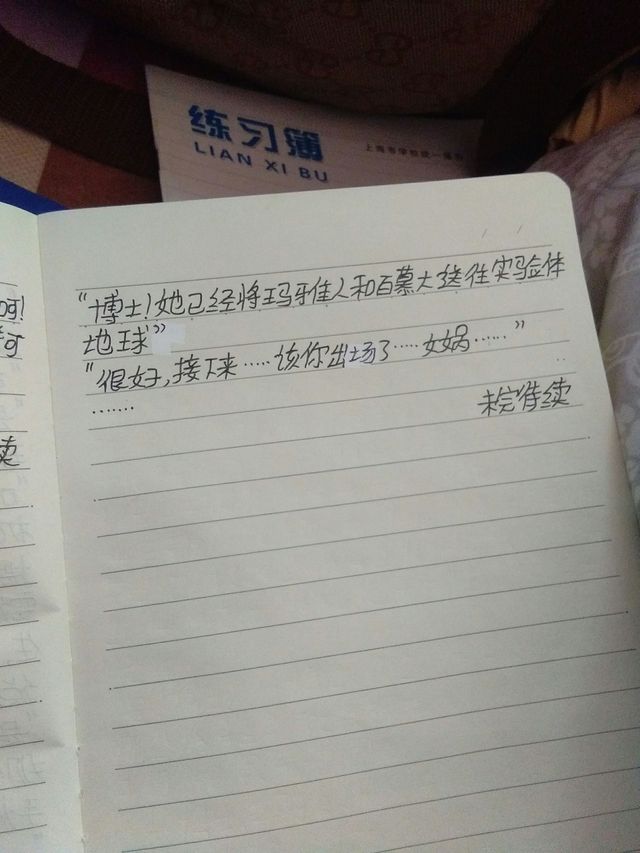 练习簿
LIAN XI BU
上海市学校统一簿册
"博士!她已经将玛雅人和百慕大送往实验体
地球"
"很好,接下来……该你出场了……女娲……"
.......
未完待续